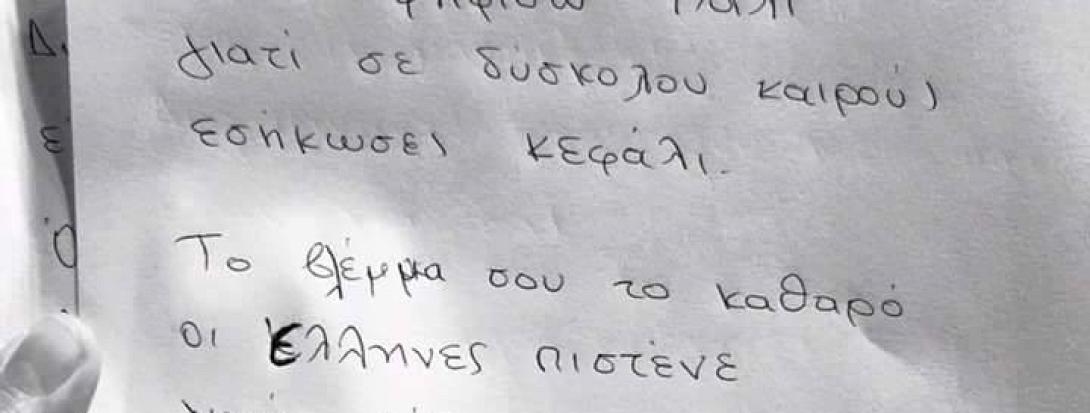 γιατί σε δύσκολου καιρούς
εσήκωσες κεφάλι.
Το βλέμμα σου το καθαρό
οι Έλληνες πιστένε